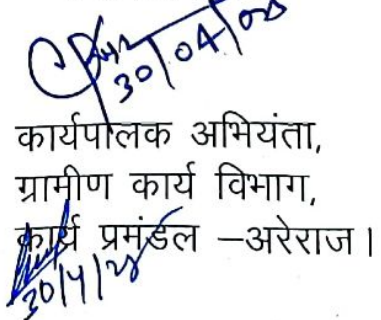 30/04/
कार्यपालक अभियंता,
ग्रामीण कार्य विभाग,
कार्य प्रमंडल –अरेराज।
30/4/